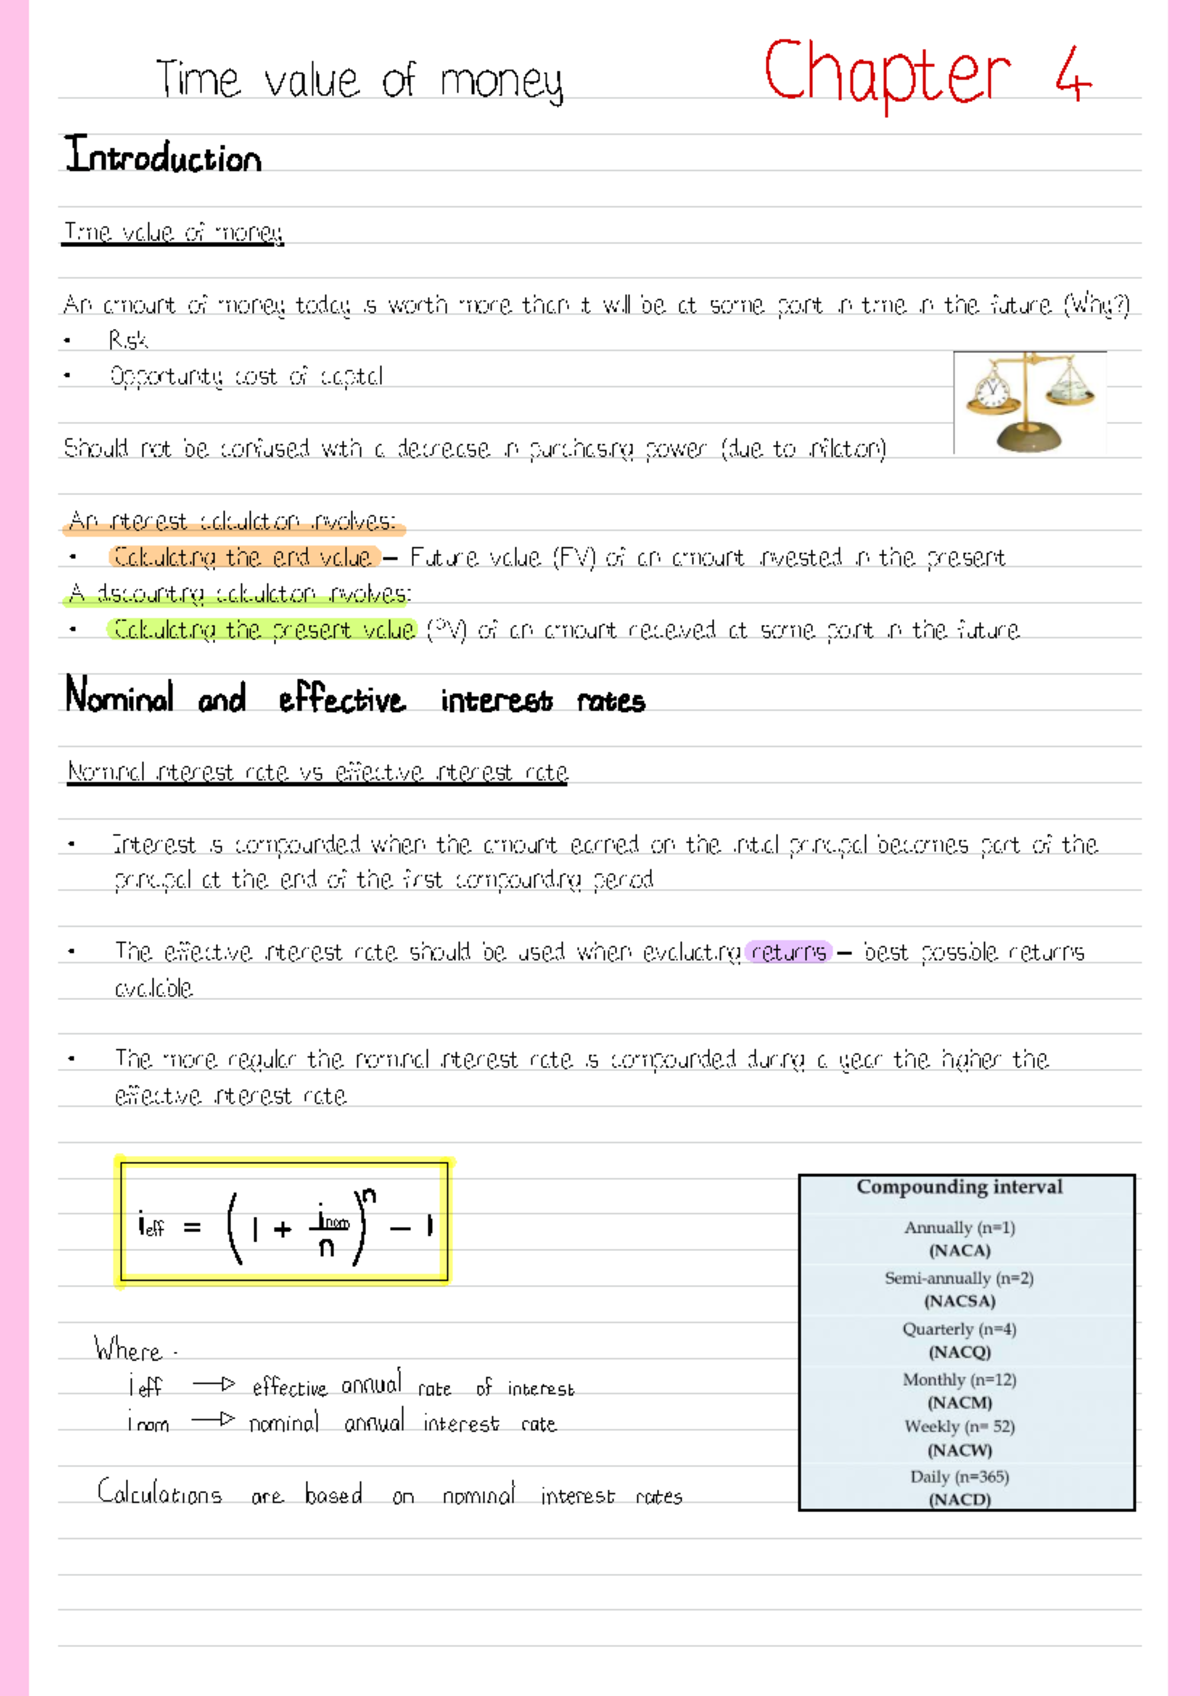 Time value of money
Chapter 4
Introduction
Time value of money
An amount of money today is worth more than it will be at some point in time in the future (Why?)
• Risk
• Opportunity cost of capital
Should not be confused with a decrease in purchasing power (due to inflation)
An interest calculation involves:
• Calculating the end value – Future value (FV) of an amount invested in the present
A discounting calculation involves:
• Calculating the present value (PV) of an amount received at some point in the future
Nominal and effective interest rates
Nominal interest rate vs effective interest rate
• Interest is compounded when the amount earned on the initial principal becomes part of the
principal at the end of the first compounding period
• The effective interest rate should be used when evaluating returns – best possible returns
available
• The more regular the nominal interest rate is compounded during a year the higher the
effective interest rate
i eff = (1 + i nom / n)^n − 1
Where -
i eff → effective annual rate of interest
i nom → nominal annual interest rate
Calculations are based on nominal interest rates
Compounding interval
Annually (n=1)
(NACA)
Semi-annually (n=2)
(NACSA)
Quarterly (n=4)
(NACQ)
Monthly (n=12)
(NACM)
Weekly (n= 52)
(NACW)
Daily (n=365)
(NACD)